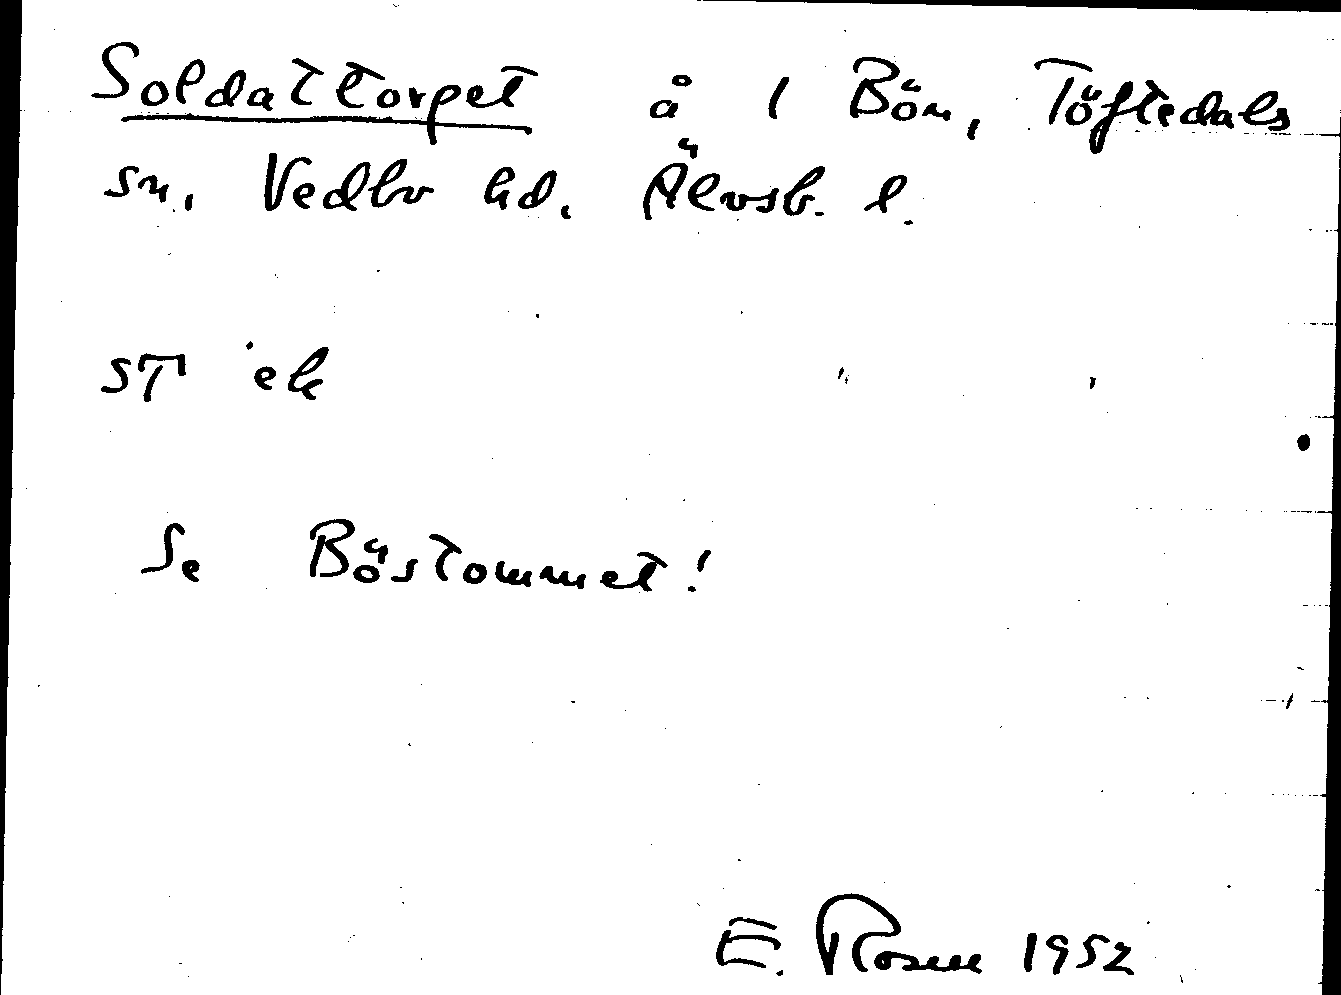 Soldattorpet å 1 Bön, Töftedals
sn. Vedbo hd. Älvsb. l.
ST ek
Se Böstommet!
E. Rosen 1952